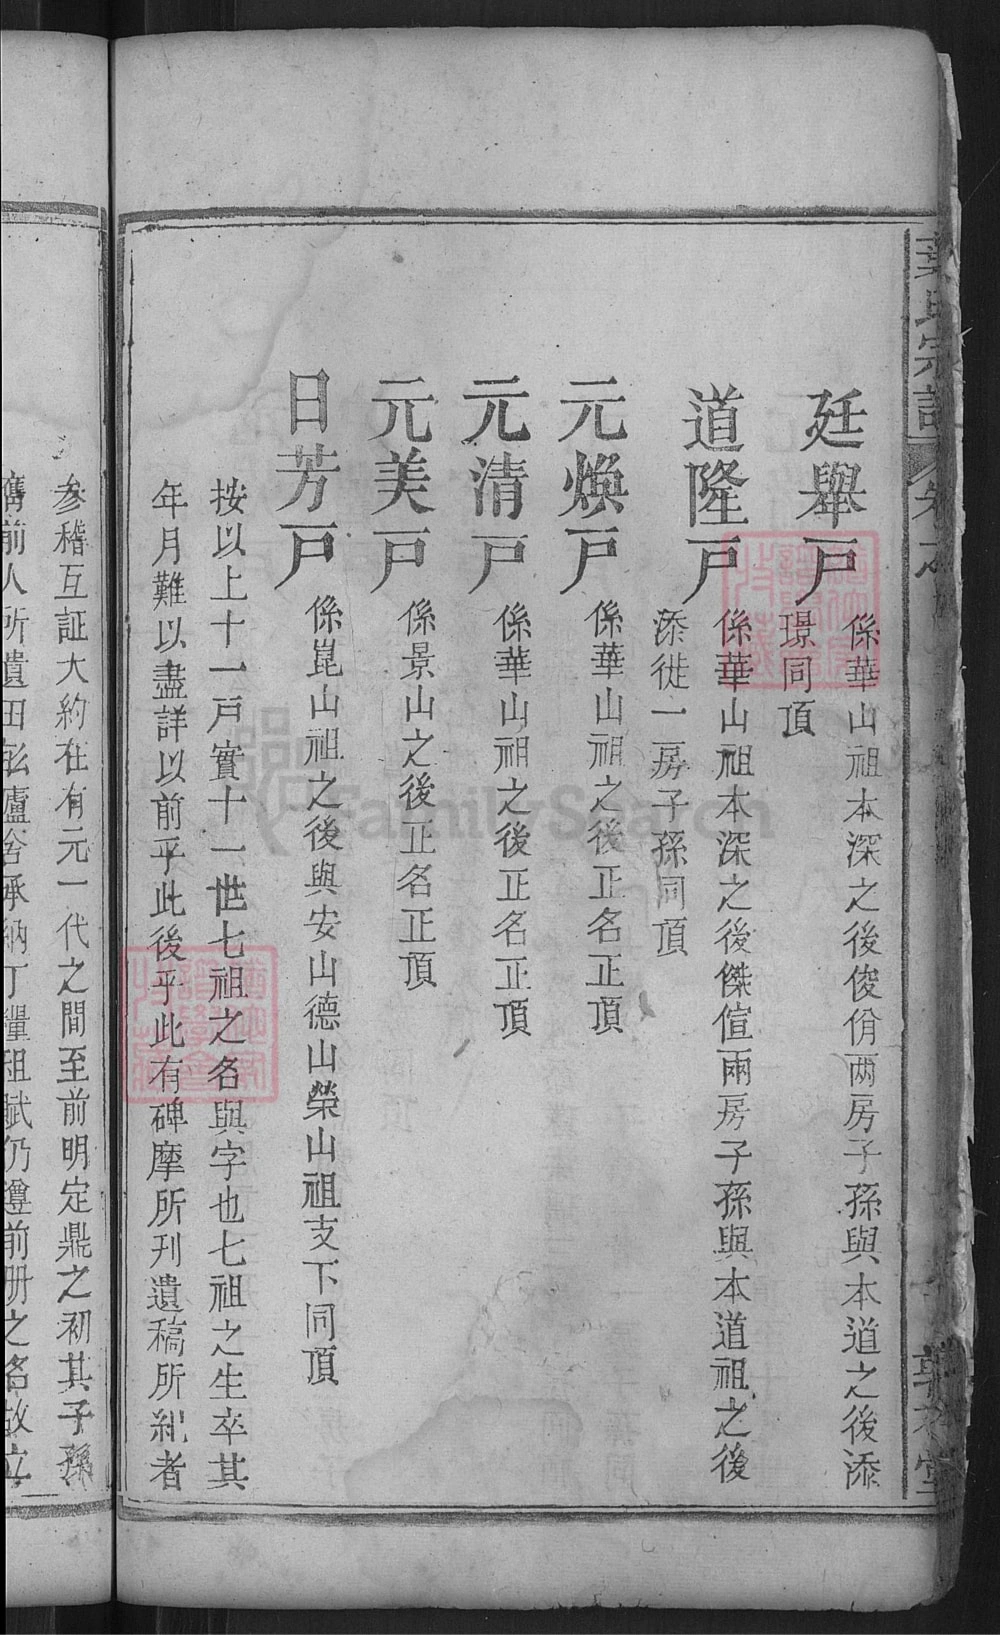 氏宗譜
廷舉戶
係華山祖本深之後俊佾兩房子孫與本道之後添
璟同頂
道隆戶
係華山祖本深之後傑值兩房子孫與本道祖之後
添徙一房子孫同頂
元煥戶
係華山祖之後正名正頂
元清戶
係華山祖之後正名正頂
元美戶
係景山之後正名正頂
日芳戶
係崑山祖之後與安山德山榮山祖支下同頂
按以上十一戶實十一世七祖之名與字也七祖之生卒其
年月難以盡詳以前乎此後乎此有碑摩所刊遺稿所紀者
參稽互証大約在有元一代之間至前明定鼎之初其子孫
舊前人所遺田廬舍承納丁糧租賦仍遵前冊之名故立
FamilySearch